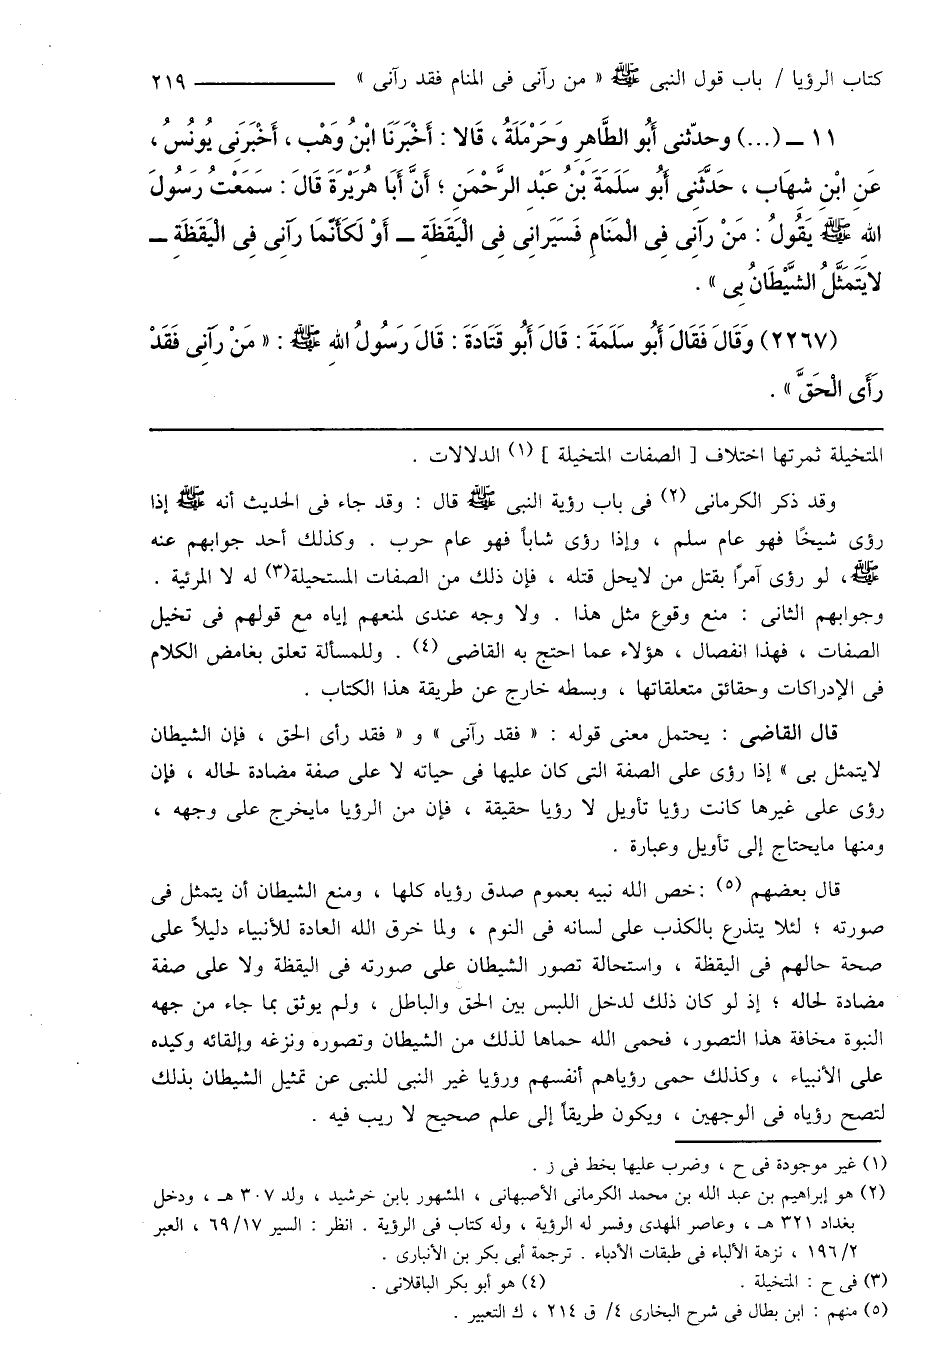 كتاب الرؤيا / باب قول النبى ﷺ « من رآنى فى المنام فقد رآنى » ــــــــــ ٢١٩
١١ ــ (...) وحدّثنى أَبُو الطَّاهِرِ وَحَرْمَلَةُ ، قَالا : أَخْبَرَنَا ابْنُ وَهْبٍ ، أَخْبَرَنِى يُونُسُ ،
عَنِ ابْنِ شِهَابٍ ، حَدَّثَنِى أَبُو سَلَمَةَ بْنُ عَبْدِ الرَّحْمَنِ ؛ أَنَّ أَبَا هُرَيْرَةَ قَالَ : سَمِعْتُ رَسُولَ
اللهِ ﷺ يَقُولُ : مَنْ رَآنِى فِى الْمَنَامِ فَسَيَرَانِى فِى الْيَقَظَةِ ــ أَوْ لَكَأَنَّمَا رَآنِى فِى الْيَقَظَةِ ــ
لايَتَمَثَّلُ الشَّيْطَانُ بِى » .
(٢٢٦٧) وَقَالَ فَقَالَ أَبُو سَلَمَةَ : قَالَ أَبُو قَتَادَةَ : قَالَ رَسُولُ اللهِ ﷺ : « مَنْ رَآنِى فَقَدْ
رَأَى الْحَقَّ » .
المتخيلة ثمرتها اختلاف [ الصفات المتخيلة ] (١) الدلالات .
وقد ذكر الكرمانى (٢) فى باب رؤية النبى ﷺ قال : وقد جاء فى الحديث أنه ﷺ إذا
رؤى شيخًا فهو عام سلم ، وإذا رؤى شاباً فهو عام حرب . وكذلك أحد جوابهم عنه
ﷺ ، لو رؤى آمرًا بقتل من لايحل قتله ، فإن ذلك من الصفات المستحيلة(٣) له لا المرئية .
وجوابهم الثانى : منع وقوع مثل هذا . ولا وجه عندى لمنعهم إياه مع قولهم فى تخيل
الصفات ، فهذا انفصال ، هؤلاء عما احتج به القاضى (٤) . وللمسألة تعلق بغامض الكلام
فى الإدراكات وحقائق متعلقاتها ، وبسطه خارج عن طريقة هذا الكتاب .
قال القاضى : يحتمل معنى قوله : « فقد رآنى » و « فقد رأى الحق ، فإن الشيطان
لايتمثل بى » إذا رؤى على الصفة التى كان عليها فى حياته لا على صفة مضادة لحاله ، فإن
رؤى على غيرها كانت رؤيا تأويل لا رؤيا حقيقة ، فإن من الرؤيا مايخرج على وجهه ،
ومنها مايحتاج إلى تأويل وعبارة .
قال بعضهم (٥) :خص الله نبيه بعموم صدق رؤياه كلها ، ومنع الشيطان أن يتمثل فى
صورته ؛ لئلا يتذرع بالكذب على لسانه فى النوم ، ولما خرق الله العادة للأنبياء دليلاً على
صحة حالهم فى اليقظة ، واستحالة تصور الشيطان على صورته فى اليقظة ولا على صفة
مضادة لحاله ؛ إذ لو كان ذلك لدخل اللبس بين الحق والباطل ، ولم يوثق بما جاء من جهه
النبوة مخافة هذا التصور، فحمى الله حماها لذلك من الشيطان وتصوره ونزغه وإلقائه وكيده
على الأنبياء ، وكذلك حمى رؤياهم أنفسهم ورؤيا غير النبى للنبى عن تمثيل الشيطان بذلك
لتصح رؤياه فى الوجهين ، ويكون طريقاً إلى علم صحيح لا ريب فيه .
(١) غير موجودة فى ح ، وضرب عليها بخط فى ز .
(٢) هو إبراهيم بن عبد الله بن محمد الكرمانى الأصبهانى ، المشهور بابن خرشيد ، ولد ٣٠٧ هـ ، ودخل
بغداد ٣٢١ هـ ، وعاصر المهدى وفسر له الرؤية ، وله كتاب فى الرؤية . انظر : السير ١٧/ ٦٩ ، العبر
٢/ ١٩٦ ، نزهة الألباء فى طبقات الأدباء . ترجمة أبى بكر بن الأنبارى .
(٣) فى ح : المتخيلة . (٤) هو أبو بكر الباقلانى .
(٥) منهم : ابن بطال فى شرح البخارى ٤/ ق ٢١٤ ، ك التعبير .